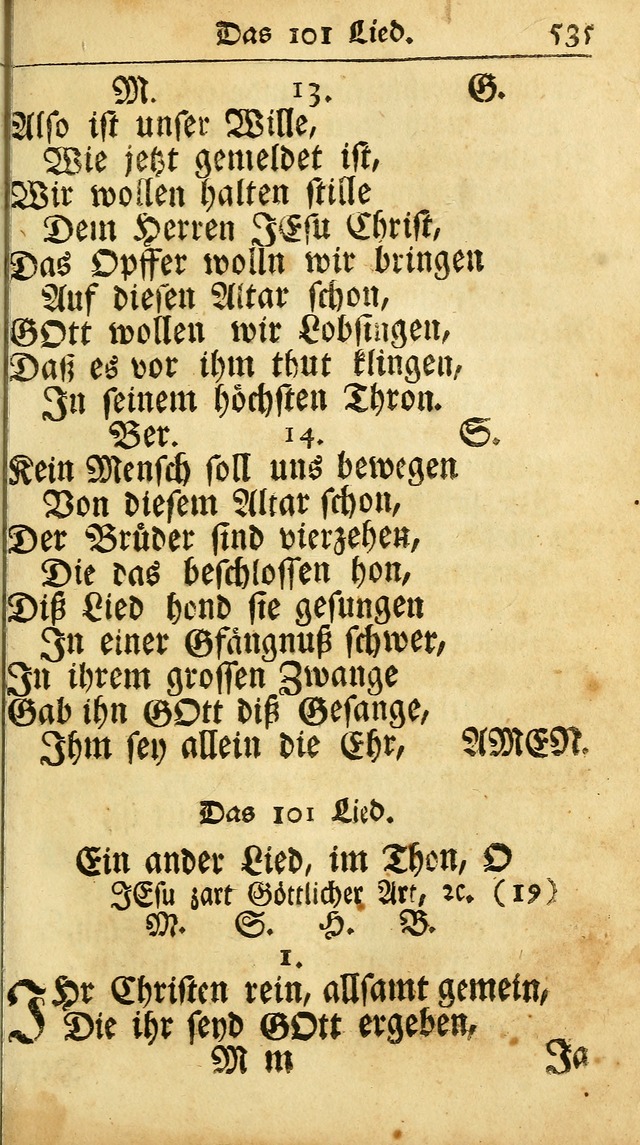 Das 101 Lied. 535
M. 13. G.
Also ist unser Wille,
Wie jetzt gemeldet ist,
Wir wollen halten stille
Dem Herren JEsu Christ,
Das Opffer wolln wir bringen
Auf diesen Altar schon,
GOtt wollen wir Lobsingen,
Daß es vor ihm thut klingen,
In seinem höchsten Thron.
Ber. 14. S.
Kein Mensch soll uns bewegen
Von diesem Altar schon,
Der Brüder sind vierzehen,
Die das beschlossen hon,
Diß Lied hond sie gesungen
In einer Gfängnuß schwer,
In ihrem grossen Zwange
Gab ihn GOtt diß Gesange,
Ihm sey allein die Ehr, AMEN.
Das 101 Lied.
Ein ander Lied, im Thon, O
JEsu zart Göttlicher Art, ꝛc. (19)
M. S. H. B.
1.
IHr Christen rein, allsamt gemein,
Die ihr seyd GOtt ergeben,
M m Ja